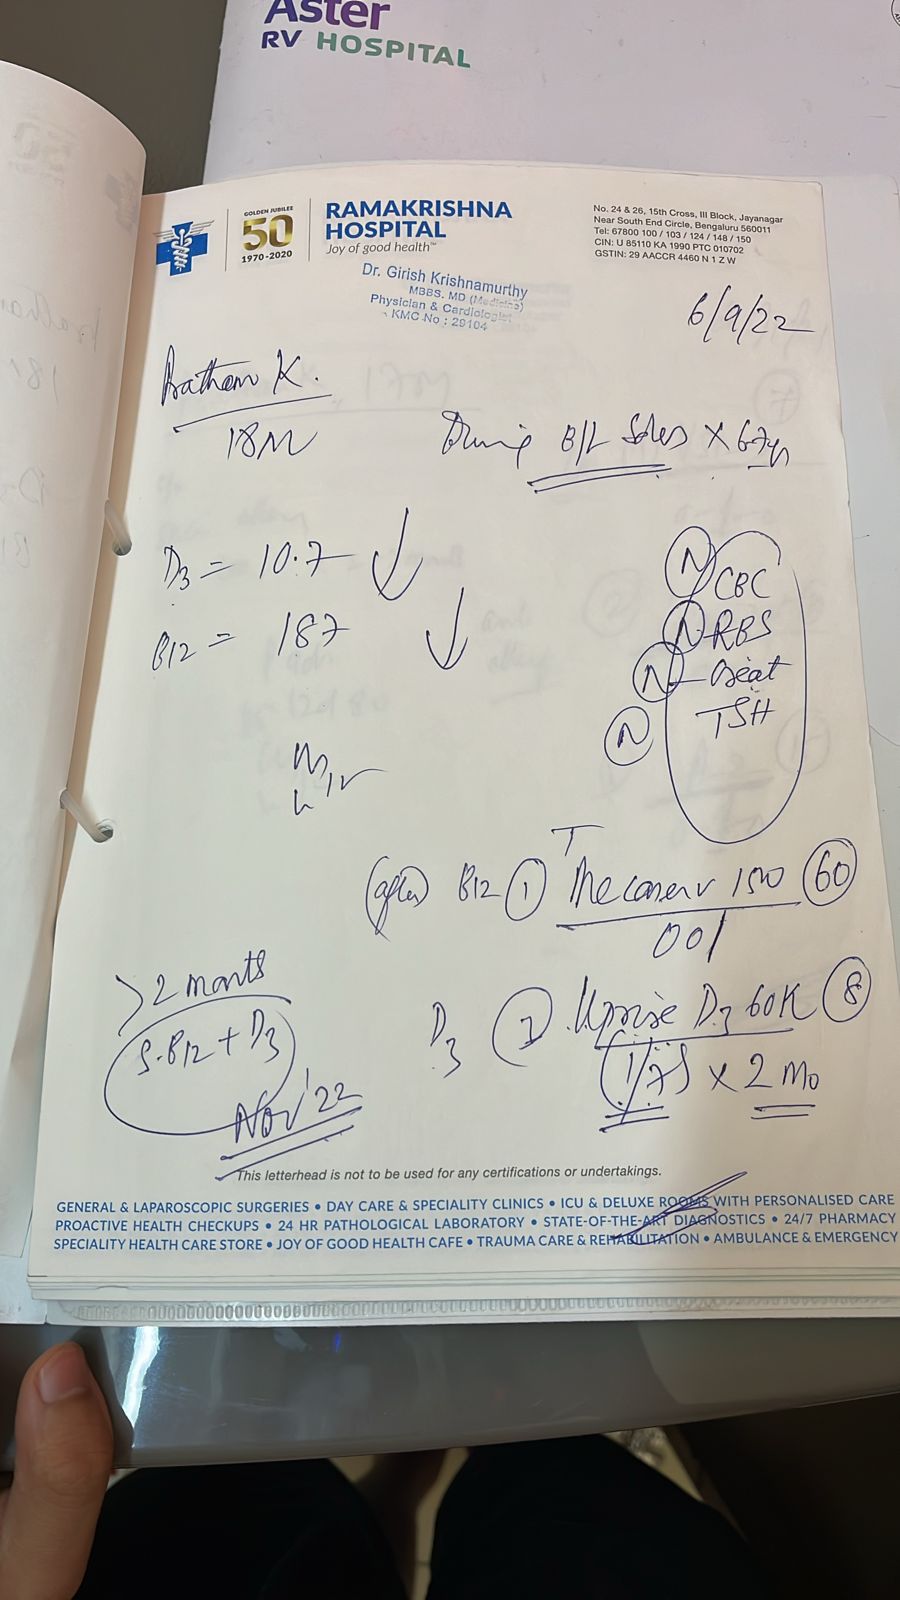 Aster
RV HOSPITAL
GOLDEN JUBILEE
50
1970-2020
RAMAKRISHNA
HOSPITAL
Joy of good health™
No. 24 & 26, 15th Cross, III Block, Jayanagar
Near South End Circle, Bengaluru 560011
Tel: 67800 100 / 103 / 124 / 148 / 150
CIN: U 85110 KA 1990 PTC 010702
GSTIN: 29 AACCR 4460 N 1 Z W
Dr. Girish Krishnamurthy
MBBS. MD (Medicine)
Physician & Cardiologist
KMC No : 29104
6/9/22
K.
18M
B/L Soles X
D3 = 10.7 ↓
B12 = 187 ↓
N CBC
N RBS
N creat
N TSH
(after) B12 1 T 1500 60
001
D3 2 Uprise D3 60K 8
1/7 x 2 Mo
>2 months
S. B12 + D3
Nov '22
This letterhead is not to be used for any certifications or undertakings.
GENERAL & LAPAROSCOPIC SURGERIES • DAY CARE & SPECIALITY CLINICS • ICU & DELUXE ROOMS WITH PERSONALISED CARE
PROACTIVE HEALTH CHECKUPS • 24 HR PATHOLOGICAL LABORATORY • STATE-OF-THE-ART DIAGNOSTICS • 24/7 PHARMACY
SPECIALITY HEALTH CARE STORE • JOY OF GOOD HEALTH CAFE • TRAUMA CARE & REHABILITATION • AMBULANCE & EMERGENCY